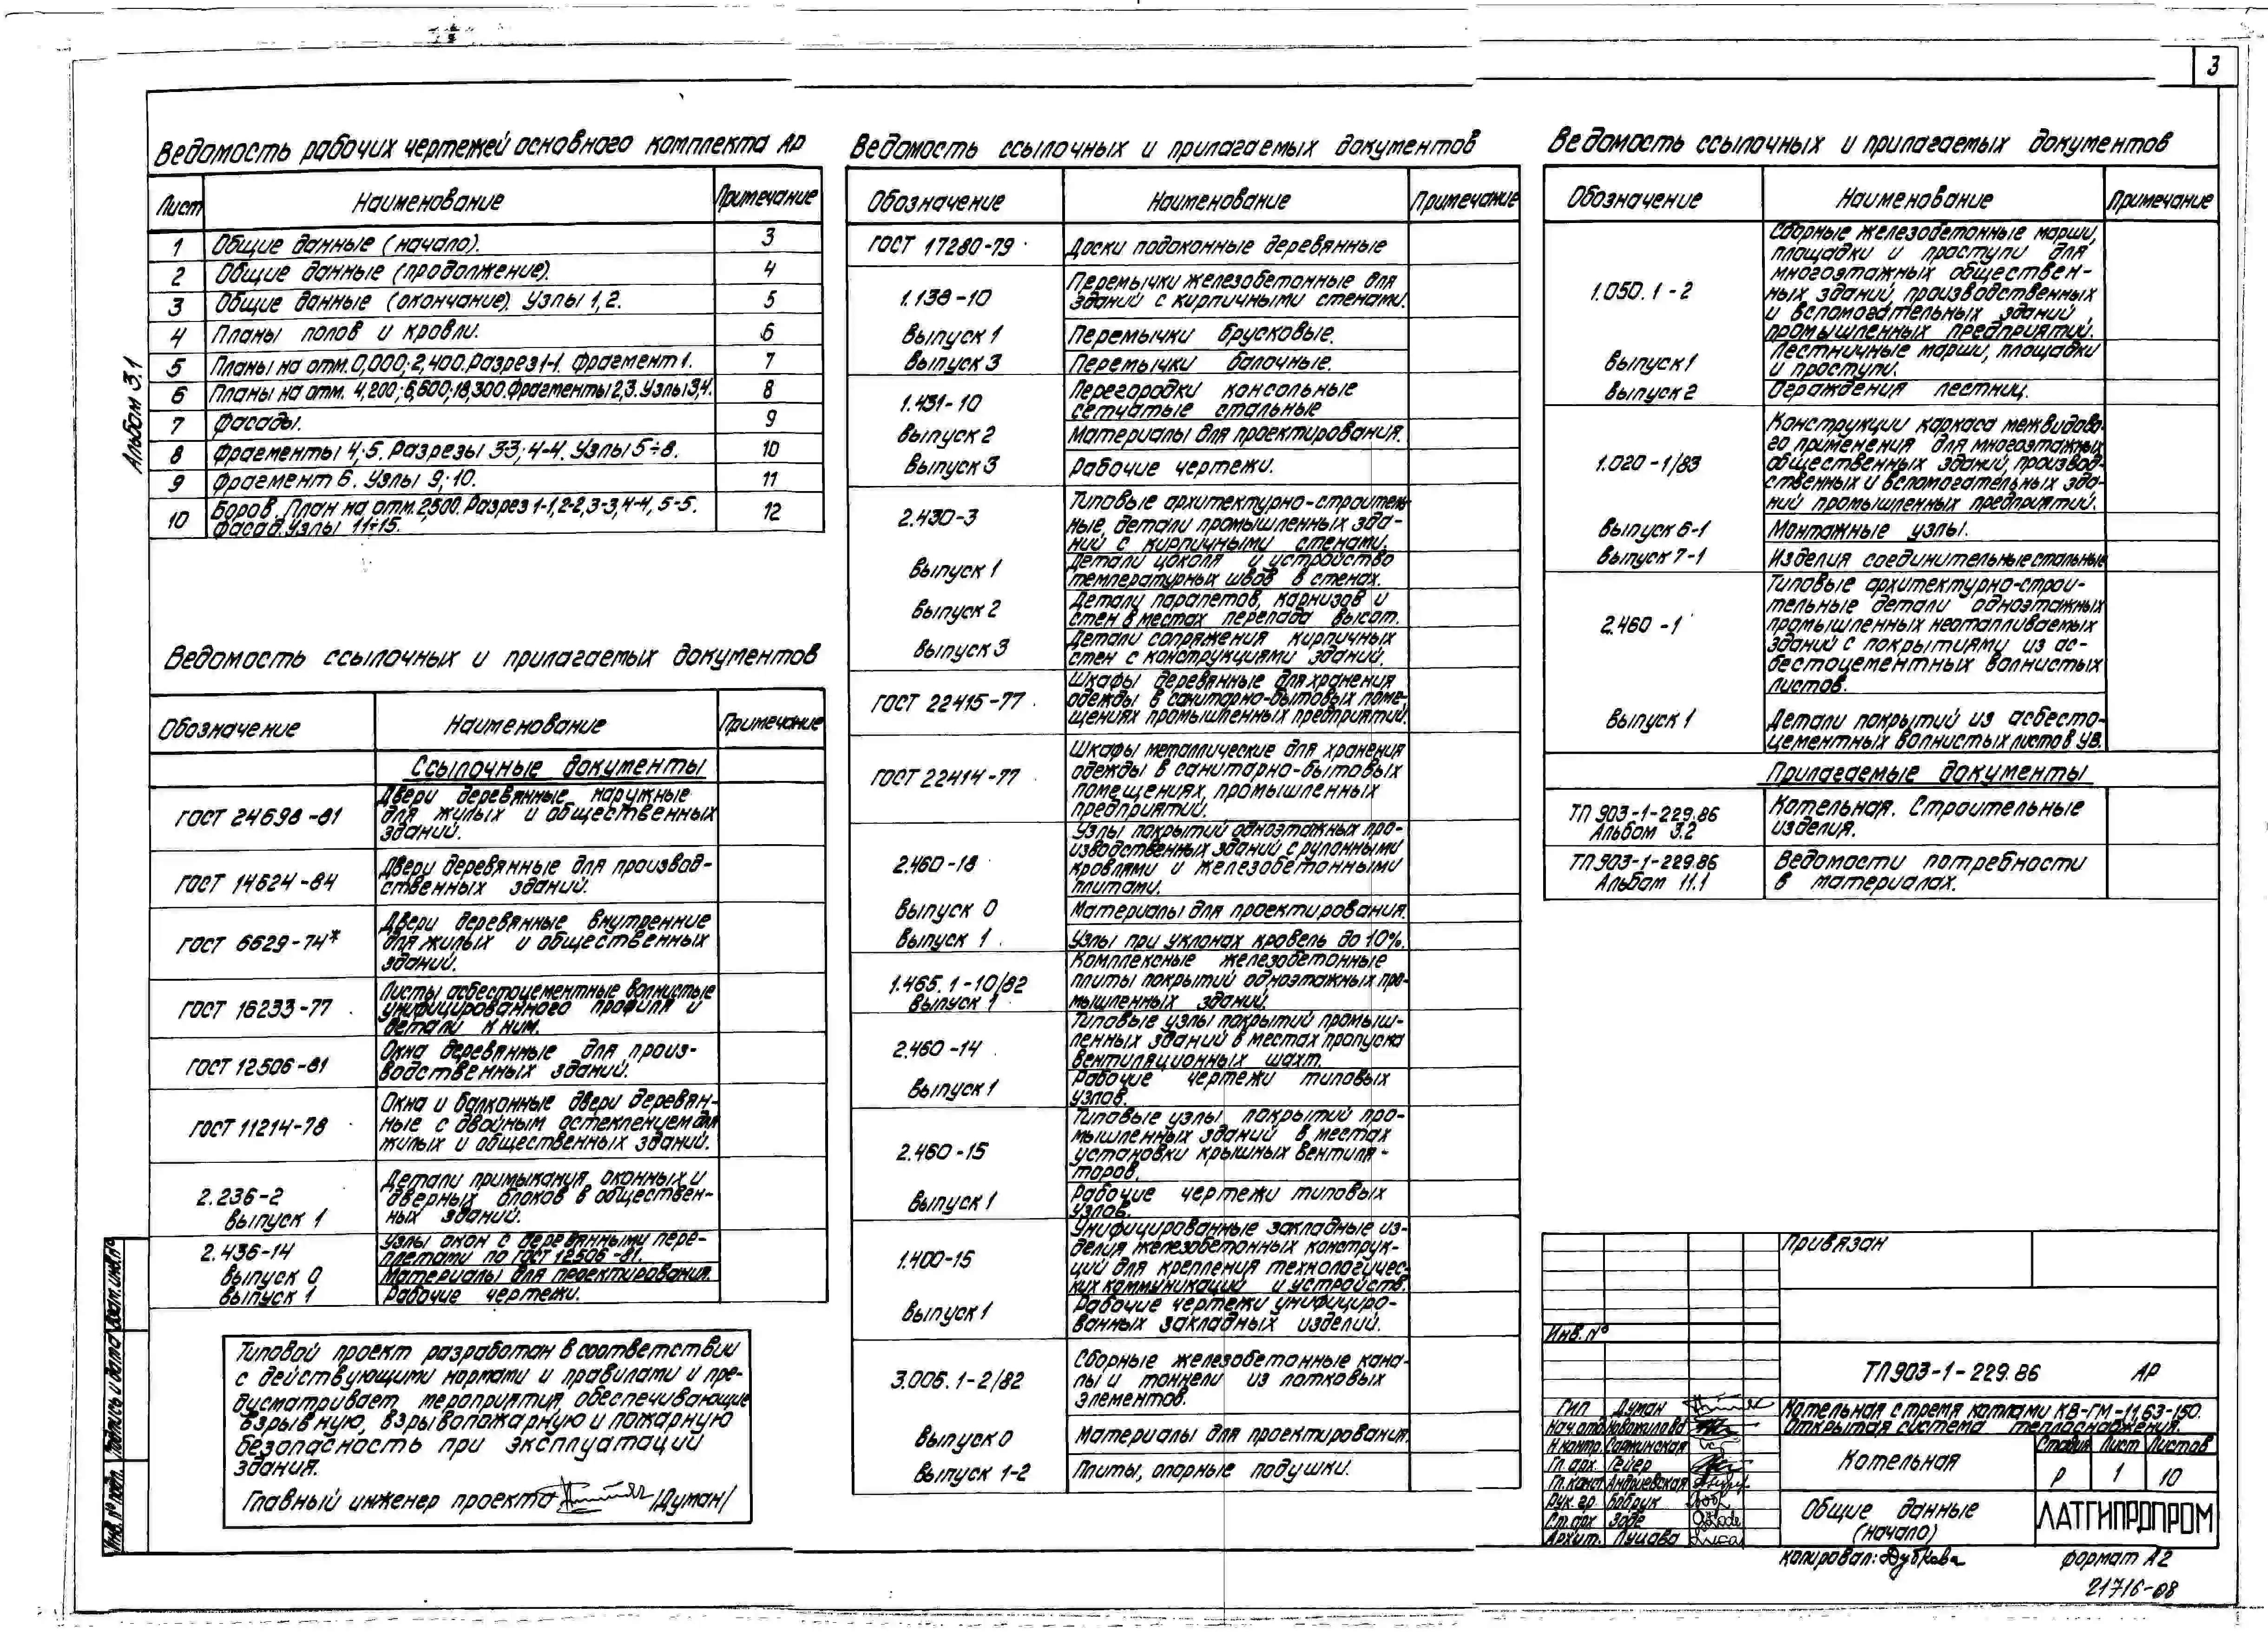 3
Альбом 3.1
Ведомость рабочих чертежей основного комплекта АР
Лист Наименование Примечание
1 Общие данные (начало). 3
2 Общие данные (продолжение). 4
3 Общие данные (окончание). Узлы 1, 2. 5
4 Планы полов и кровли. 6
5 Планы на отм. 0,000; 2,400. Разрез 1-1. Фрагмент 1. 7
6 Планы на отм. 4,200; 6,600; 18,300. Фрагменты 2,3. Узлы 3,4. 8
7 Фасады. 9
8 Фрагменты 4; 5. Разрезы 3-3; 4-4. Узлы 5÷8. 10
9 Фрагмент 6. Узлы 9; 10. 11
10 Боров. План на отм. 2,500. Разрез 1-1, 2-2, 3-3, 4-4, 5-5. 12
Фасад. Узлы 11÷15.
Ведомость ссылочных и прилагаемых документов
Обозначение Наименование Примечание
Ссылочные документы
ГОСТ 24698-81 Двери деревянные наружные
для жилых и общественных
зданий.
ГОСТ 14624-84 Двери деревянные для производ-
ственных зданий.
ГОСТ 6629-74* Двери деревянные внутренние
для жилых и общественных
зданий.
ГОСТ 16233-77 Листы асбестоцементные волнистые
унифицированного профиля и
детали к ним.
ГОСТ 12506-81 Окна деревянные для произ-
водственных зданий.
ГОСТ 11214-78 Окна и балконные двери деревян-
ные с двойным остеклением для
жилых и общественных зданий.
2.236-2 Детали примыкания оконных и
дверных блоков в обществен-
выпуск 1 ных зданий.
2.436-14 Узлы окон с деревянными пере-
плетами по ГОСТ 12506-81.
выпуск 0 Материалы для проектирования.
выпуск 1 Рабочие чертежи.
Типовой проект разработан в соответствии
с действующими нормами и правилами и пре-
дусматривает мероприятия, обеспечивающие
взрывную, взрывопожарную и пожарную
безопасность при эксплуатации
здания.
Главный инженер проекта /Думан/
Ведомость ссылочных и прилагаемых документов
Обозначение Наименование Примечание
ГОСТ 17280-79 Доски подоконные деревянные
1.138-10 Перемычки железобетонные для
зданий с кирпичными стенами.
выпуск 1 Перемычки брусковые.
выпуск 3 Перемычки балочные.
1.431-10 Перегородки консольные
сетчатые стальные
выпуск 2 Материалы для проектирования.
выпуск 3 Рабочие чертежи.
2.430-3 Типовые архитектурно-строитель-
ные детали промышленных зда-
ний с кирпичными стенами.
выпуск 1 Детали цоколя и устройство
температурных швов в стенах.
выпуск 2 Детали парапетов, карнизов и
стен в местах перепада высот.
выпуск 3 Детали сопряжения кирпичных
стен с конструкциями зданий.
ГОСТ 22415-77 Шкафы деревянные для хранения
одежды в санитарно-бытовых поме-
щениях промышленных предприятий.
ГОСТ 22414-77 Шкафы металлические для хранения
одежды в санитарно-бытовых
помещениях, промышленных
предприятий.
2.460-18 Узлы покрытий одноэтажных про-
изводственных зданий с рулонными
кровлями и железобетонными
плитами.
выпуск 0 Материалы для проектирования.
выпуск 1 Узлы при уклонах кровель до 10%.
1.465.1-10/82 Комплексные железобетонные
плиты покрытий одноэтажных про-
выпуск 1 мышленных зданий.
2.460-14 Типовые узлы покрытий промыш-
ленных зданий в местах пропуска
вентиляционных шахт.
выпуск 1 Рабочие чертежи типовых
узлов.
2.460-15 Типовые узлы покрытий про-
мышленных зданий в местах
установки крышных вентиля-
торов.
выпуск 1 Рабочие чертежи типовых
узлов.
1.400-15 Унифицированные закладные из-
делия железобетонных конструк-
ций для крепления технологичес-
ких коммуникаций и устройств.
выпуск 1 Рабочие чертежи унифициро-
ванных закладных изделий.
3.006.1-2/82 Сборные железобетонные кана-
лы и тоннели из лотковых
элементов.
выпуск 0 Материалы для проектирования.
выпуск 1-2 Плиты, опорные подушки.
Ведомость ссылочных и прилагаемых документов
Обозначение Наименование Примечание
1.050.1-2 Сборные железобетонные марши,
площадки и проступи для
многоэтажных обществен-
ных зданий, производственных
и вспомогательных зданий
промышленных предприятий.
выпуск 1 Лестничные марши, площадки
и проступи.
выпуск 2 Ограждения лестниц.
1.020-1/83 Конструкции каркаса межвидово-
го применения для многоэтажных
общественных зданий, производ-
ственных и вспомогательных зда-
ний промышленных предприятий.
выпуск 6-1 Монтажные узлы.
выпуск 7-1 Изделия соединительные стальные
2.460-1 Типовые архитектурно-строи-
тельные детали одноэтажных
промышленных неотапливаемых
зданий с покрытиями из ас-
бестоцементных волнистых
листов.
выпуск 1 Детали покрытий из асбесто-
цементных волнистых листов УВ.
Прилагаемые документы
ТП 903-1-229.86 Котельная. Строительные
Альбом 3.2 изделия.
ТП 903-1-229.86 Ведомости потребности
Альбом 11.1 в материалах.
Привязан
Инв. №
ТП 903-1-229.86 АР
ГИП Думан
Нач. отд. Новомилова
Н. контр. Сарминская
Гл. арх. Гейер
Гл. конст. Андриевская
Рук. гр. Бобрук
Ст. арх. Зоде
Архит. Луцава
Котельная с тремя котлами КВ-ГМ-11,63-150.
Открытая система теплоснабжения.
Котельная
Стадия Лист Листов
Р 1 10
Общие данные
(начало)
ЛАТГИПРОПРОМ
Копировал: Дубкова формат А2
21716-08
Инв. № подл. Подпись и дата Взам. инв. №